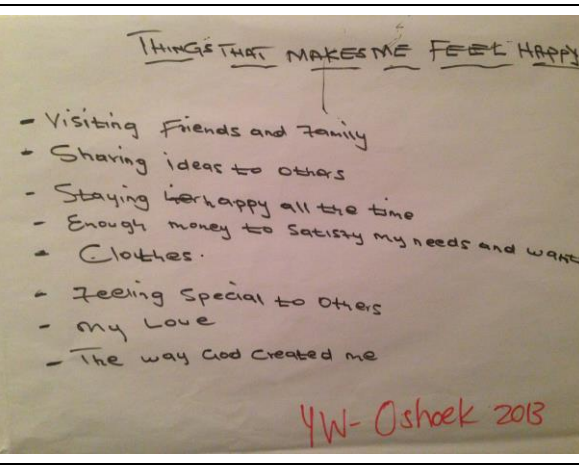 THINGS THAT MAKES ME FEEL HAPPY
- Visiting Friends and Family
- Sharing ideas to others
- Staying happy all the time
- Enough money to Satisfy my needs and want
- Clothes.
- Feeling Special to Others
- my Love
- The way God Created me
YW- Oshoek 2013